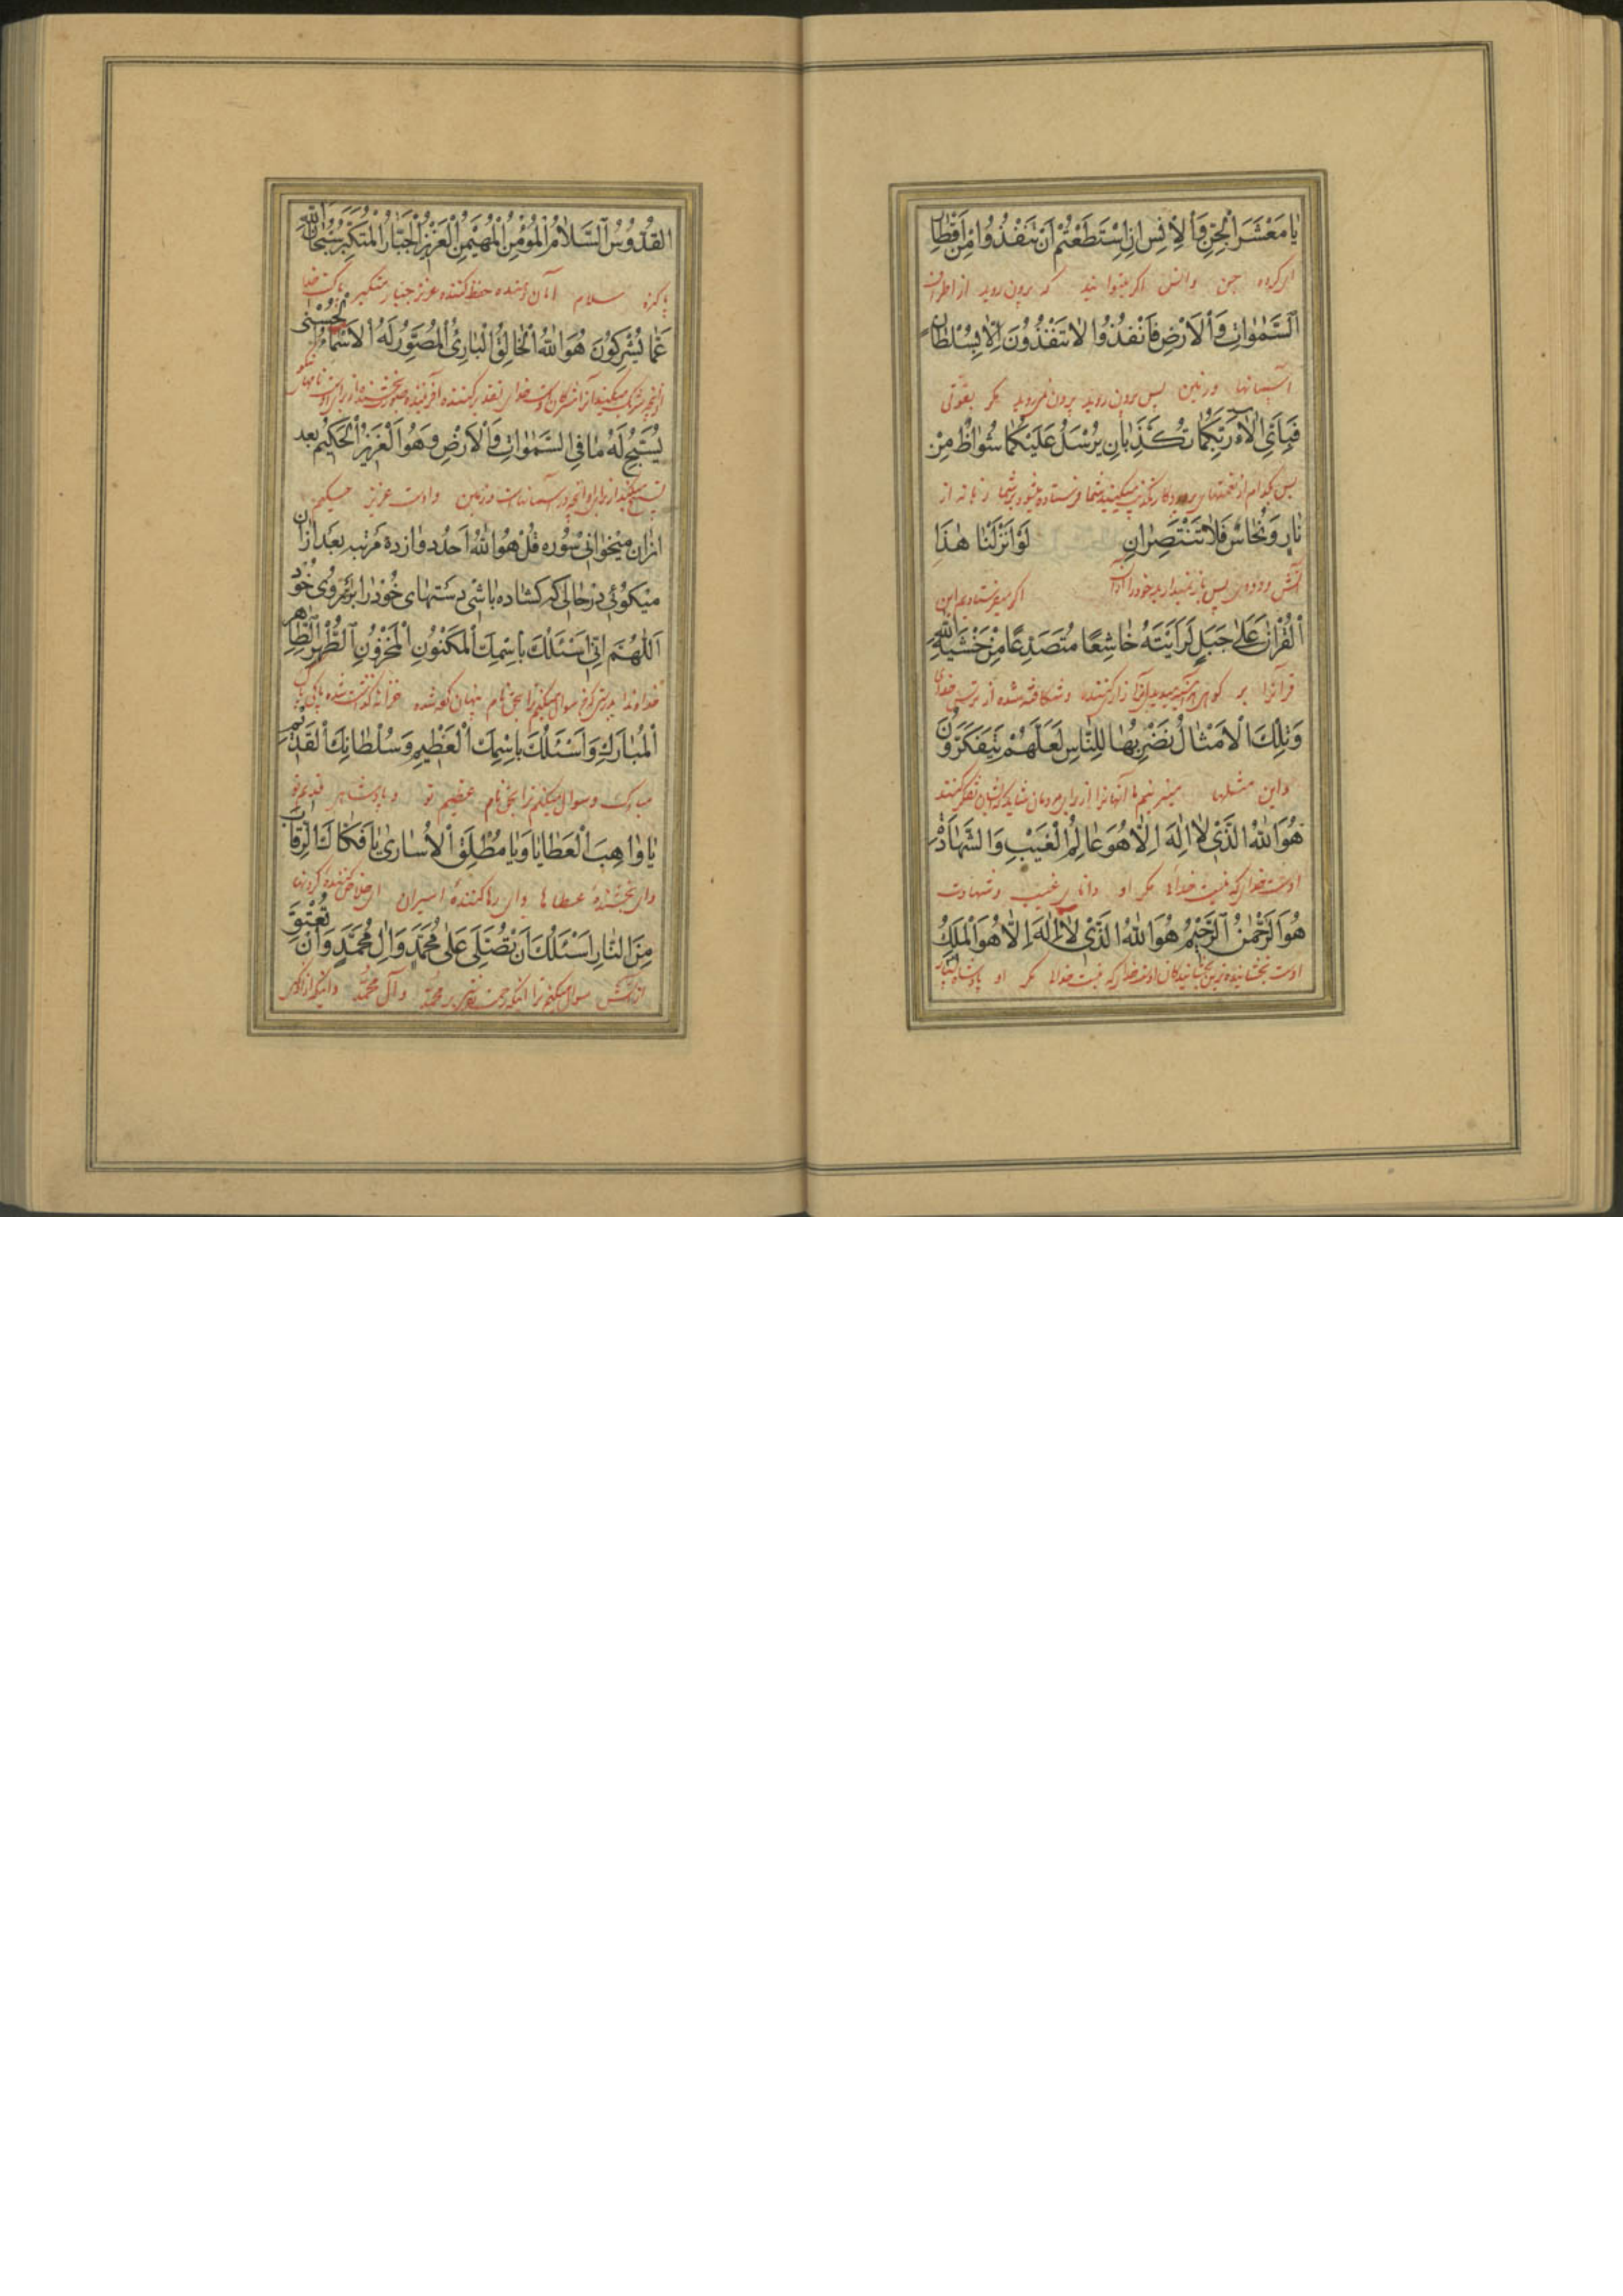 یا مَعْشَرَ الْجِنِّ وَ الْاِنْسِ اِنِ اسْتَطَعْتُمْ اَنْ تَنْفُذُوا مِنْ اَقْطارِ
ای کروه جن وانس اکر میتوانید که برون روید از اطراف
اَلسَّمٰوٰاتِ وَ الْاَرْضِ فَانْفُذُوا لاٰ تَنْفُذُونَ اِلّاٰ بِسُلْطانٍ
آسمانها و زمین پس برون روید برون نمی روید مکر بقوتی
فَبِاَیِّ اٰلآءِ رَبِّکُمٰا تُکَذِّبٰانِ یُرْسَلُ عَلَیْکُمٰا شُوٰاظٌ مِنْ
پس بکدام از نعمتهای پروردکار تکذیب میکنید شما فرستاده میشود بر شما زبانه از
نٰارٍ وَ نُحٰاسٌ فَلاٰ تَنْتَصِرٰانِ لَوْ اَنْزَلْنٰا هٰذَا
آتش و دودی پس باز نمیدارید خود را از آن اکر میفرستادیم این
اَلْقُرْاٰنَ عَلیٰ جَبَلٍ لَرَاَیْتَهُ خٰاشِعًا مُتَصَدِّعًا مِنْ خَشْیَةِ اللّٰهِ
قرآنرا بر کوهی و شکافته شده از ترس خدای
وَ تِلْکَ الْاَمْثٰالُ نَضْرِبُهٰا لِلنّٰاسِ لَعَلَّهُمْ یَتَفَکَّرُونَ
و این مثلها میزنیم ما آنها را از برای مردمان شاید که ایشان تفکر کنند
هُوَ اللّٰهُ الَّذی لاٰ اِلٰهَ اِلّاٰ هُوَ عٰالِمُ الْغَیْبِ وَ الشَّهٰادَةِ
اوست خدائی که نیست خدائی مکر او دانای غیب و شهادت
هُوَ الرَّحْمٰنُ الرَّحیمُ هُوَ اللّٰهُ الَّذی لاٰ اِلٰهَ اِلّاٰ هُوَ الْمَلِکُ
اوست بخشاینده ترین بخشایندکان اوست خدائی که نیست خدائی مکر او پادشاه
اَلْقُدُّوسُ السَّلاٰمُ الْمُؤْمِنُ الْمُهَیْمِنُ الْعَزیزُ الْجَبّٰارُ الْمُتَکَبِّرُ سُبْحٰانَ اللّٰهِ
پاکیزه سلام امان دهنده حفظ کننده عزیز جبار متکبر پاکست خدا
عَمّٰا یُشْرِکُونَ هُوَ اللّٰهُ الْخٰالِقُ الْبٰارِئُ الْمُصَوِّرُ لَهُ الْاَسْمٰاءُ الْحُسْنیٰ
از آنچه شریک میکنند آنرا مشرکان اوست خدای تقدیر کننده آفریننده صورت بخشنده از برای اوست نامهای نیکو
یُسَبِّحُ لَهُ مٰا فِی السَّمٰوٰاتِ وَ الْاَرْضِ وَ هُوَ الْعَزیزُ الْحَکیمُ بعد
تسبیح میکند از برای او آنچه در آسمانهاست و زمین و اوست عزیز حکیم
ازان میخوانی سُوره قُلْ هُوَ اللّٰهُ اَحَدٌ دوازده مَرتبه بَعد ازان
میکوئی در حالی که کشاده باشی دستهای خود را برابر روی خود
اَللّٰهُمَّ اِنّی اَسْئَلُکَ بِاسْمِکَ الْمَکْنُونِ الْمَخْزُونِ الطُّهْرِ الطّٰاهِرِ
خداوندا بدرستی که من سوال میکنم ترا بحق نام پنهان کرده شده خزانه کذاشته شده پاکی پاک
اَلْمُبٰارَکِ وَ اَسْئَلُکَ بِاسْمِکَ الْعَظیمِ وَ سُلْطٰانِکَ الْقَدیمِ
مبارک و سوال میکنم ترا بحق نام عظیم تو و پادشاهی قدیم تو
یٰا وٰاهِبَ الْعَطٰایٰا وَ یٰا مُطْلِقَ الْاُسٰاریٰ یٰا فَکّٰاکَ الرِّقٰابِ
و ای بخشندهٔ عطاها و ای رها کنندهٔ اسیران ای خلاص کنندهٔ کردنها
مِنَ النّٰارِ اَسْئَلُکَ اَنْ تُصَلِّیَ عَلیٰ مُحَمَّدٍ وَ اٰلِ مُحَمَّدٍ وَ اَنْ تُعْتِقَ
از آتش سوال میکنم ترا اینکه رحمت بفرستی بر محمّد و آل محمّد و اینکه آزاد کنی